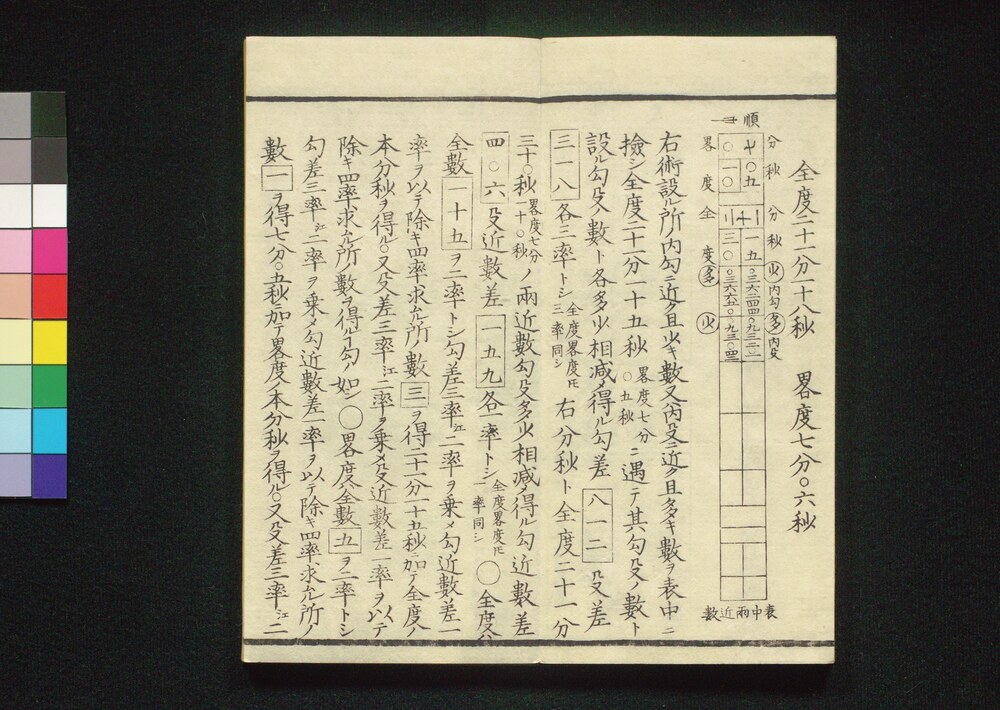 全度二十一分一十八秒　畧度七分〇六秒
順
分秒　分秒　㊋内勾　多内殳
畧度　全度　多　少
表中兩近數
右術設ル所内勾ニ近ク且少キ數又内殳ニ近ク且多キ數ヲ表中ニ
撿シ全度二十一分一十五秒 畧度七分〇五秒 ニ遇テ其勾殳ノ數ト
設ル勾殳ノ數ト各多少相減メ得ル勾差 八一二 殳差
三一八 各三率トシ 全度畧度圧三率同シ 右分秒ト全度二十一分
三十〇秒 畧度七分一十〇秒 ノ兩近數勾殳多少相減メ得ル勾近數差
四〇六 殳近數差 一五九 各一率トシ 全度畧度圧一率同シ 〇全度ハ
全數 一十五 ヲ二率トシ勾差三率江二率ヲ乗メ勾近數差一
率ヲ以テ除キ四率求ル所ノ數 三 ヲ得二十一分一十五秒ニ加テ全度ノ
本分秒ヲ得ル〇又殳差三率江二率ヲ乗メ殳近數差一率ヲ以テ
除キ四率求ル所數ヲ得ルヿ勾ノ如シ〇畧度ハ全數 五 ヲ二率トシ
勾差三率江二率ヲ乗メ勾近數差一率ヲ以テ除キ四率求ル所ノ
數 一 ヲ得七分〇五秒ニ加テ畧度ノ本分秒ヲ得ル〇又殳差三率江二